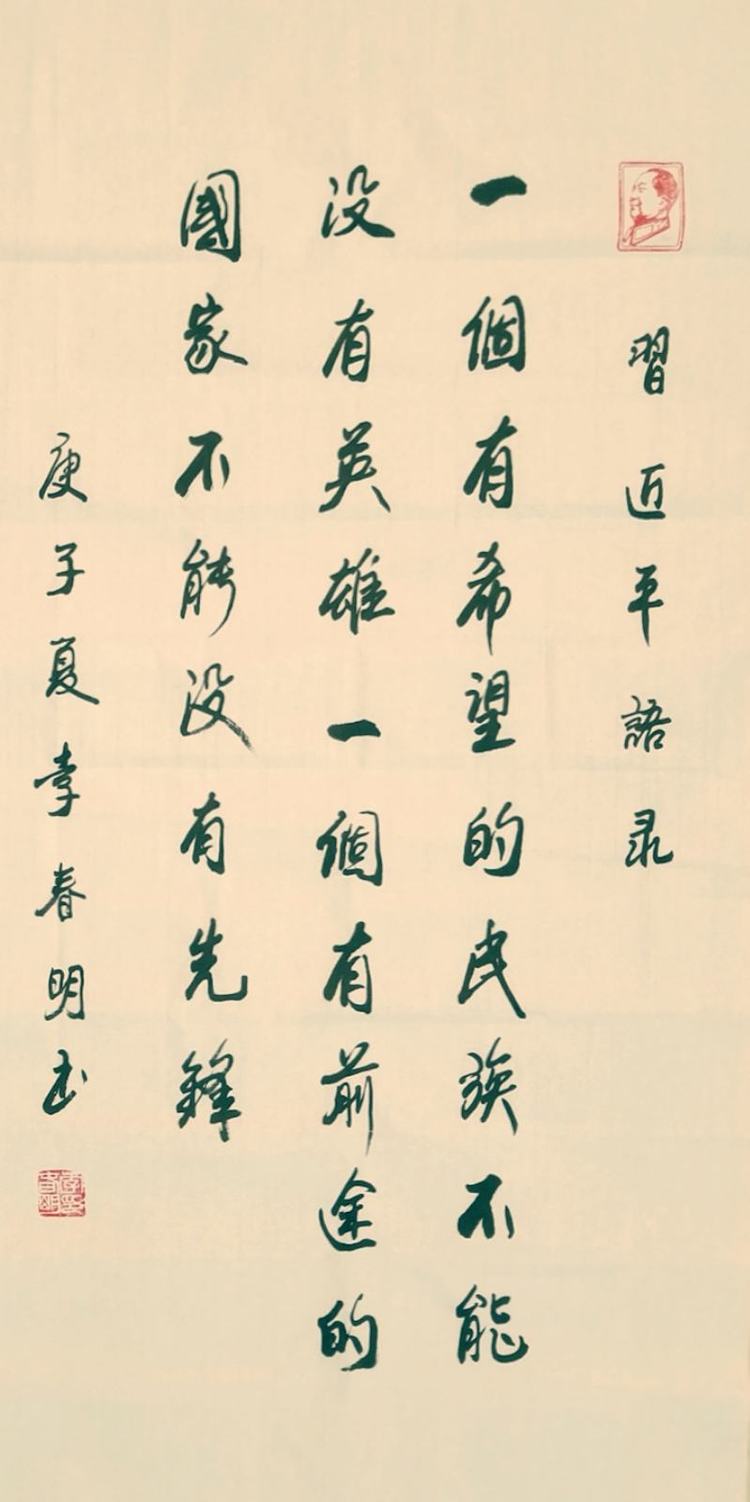 習近平語录
一個有希望的民族不能
没有英雄一個有前途的
國家不能没有先鋒
庚子夏李春明书